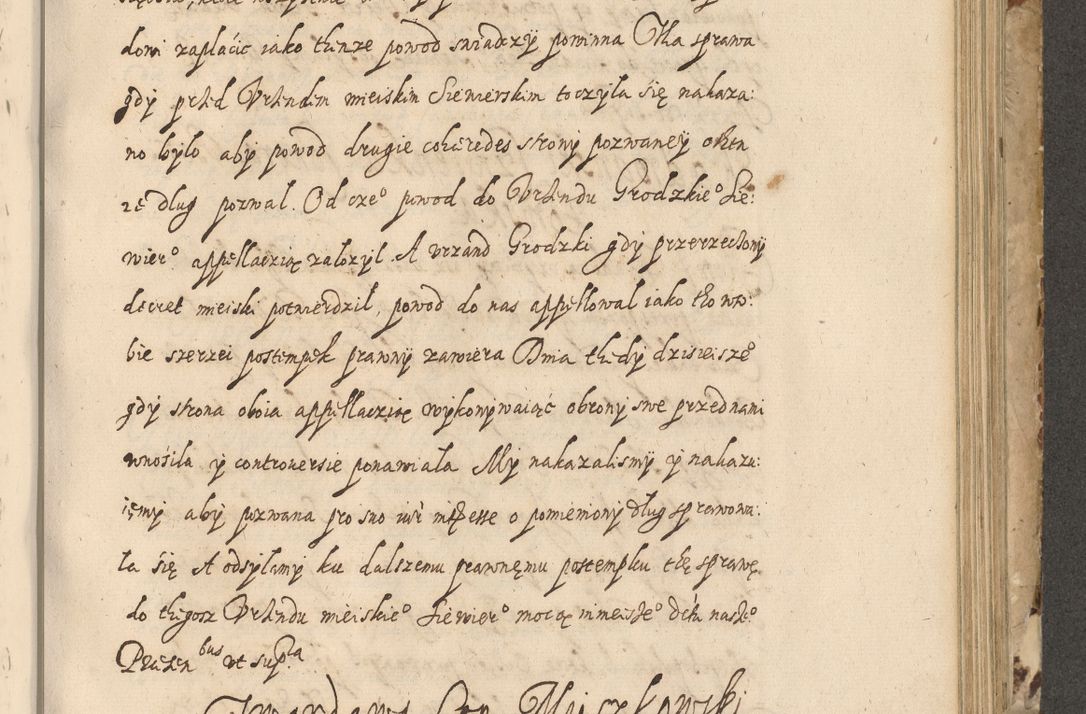 dowi zapłacic iako thenze powod swiadczÿ powinna Tha sprawa
gdÿ przed Vrzendem mieiskim Siewierskim toczyła się nakaza:
no było abÿ powod drugie cohæredes stronÿ pozwaneÿ o then
ze dług pozwal. Od cze° powod do Vrzendu Grodzkie° Sie:
wier° appellaczią założÿl A vrzand Grodzki gdÿ przerzeczonÿ
decret mieiski potwierdził, powod do nas appellowal iako tho w so:
bie szerzei postempek prawnÿ zawiera Dnia thedÿ dzisieisze°
gdÿ strona oboia appellaczię wÿkonÿwaiąc obronÿ swe przed nami
wnosiła ÿ controuersie ponawiala Mÿ nakazalismÿ ÿ nakazu:
iemÿ abÿ pozwana pro suo o pomienionÿ dług sprawowa:
ła się A odsÿlamÿ ku dalszemu prawnemu postempku thę sprawę
do thegosz Vrzendu mieiskie° Siewier° mocą ninieisze° dctu nasze°
Præsen bus vt supra